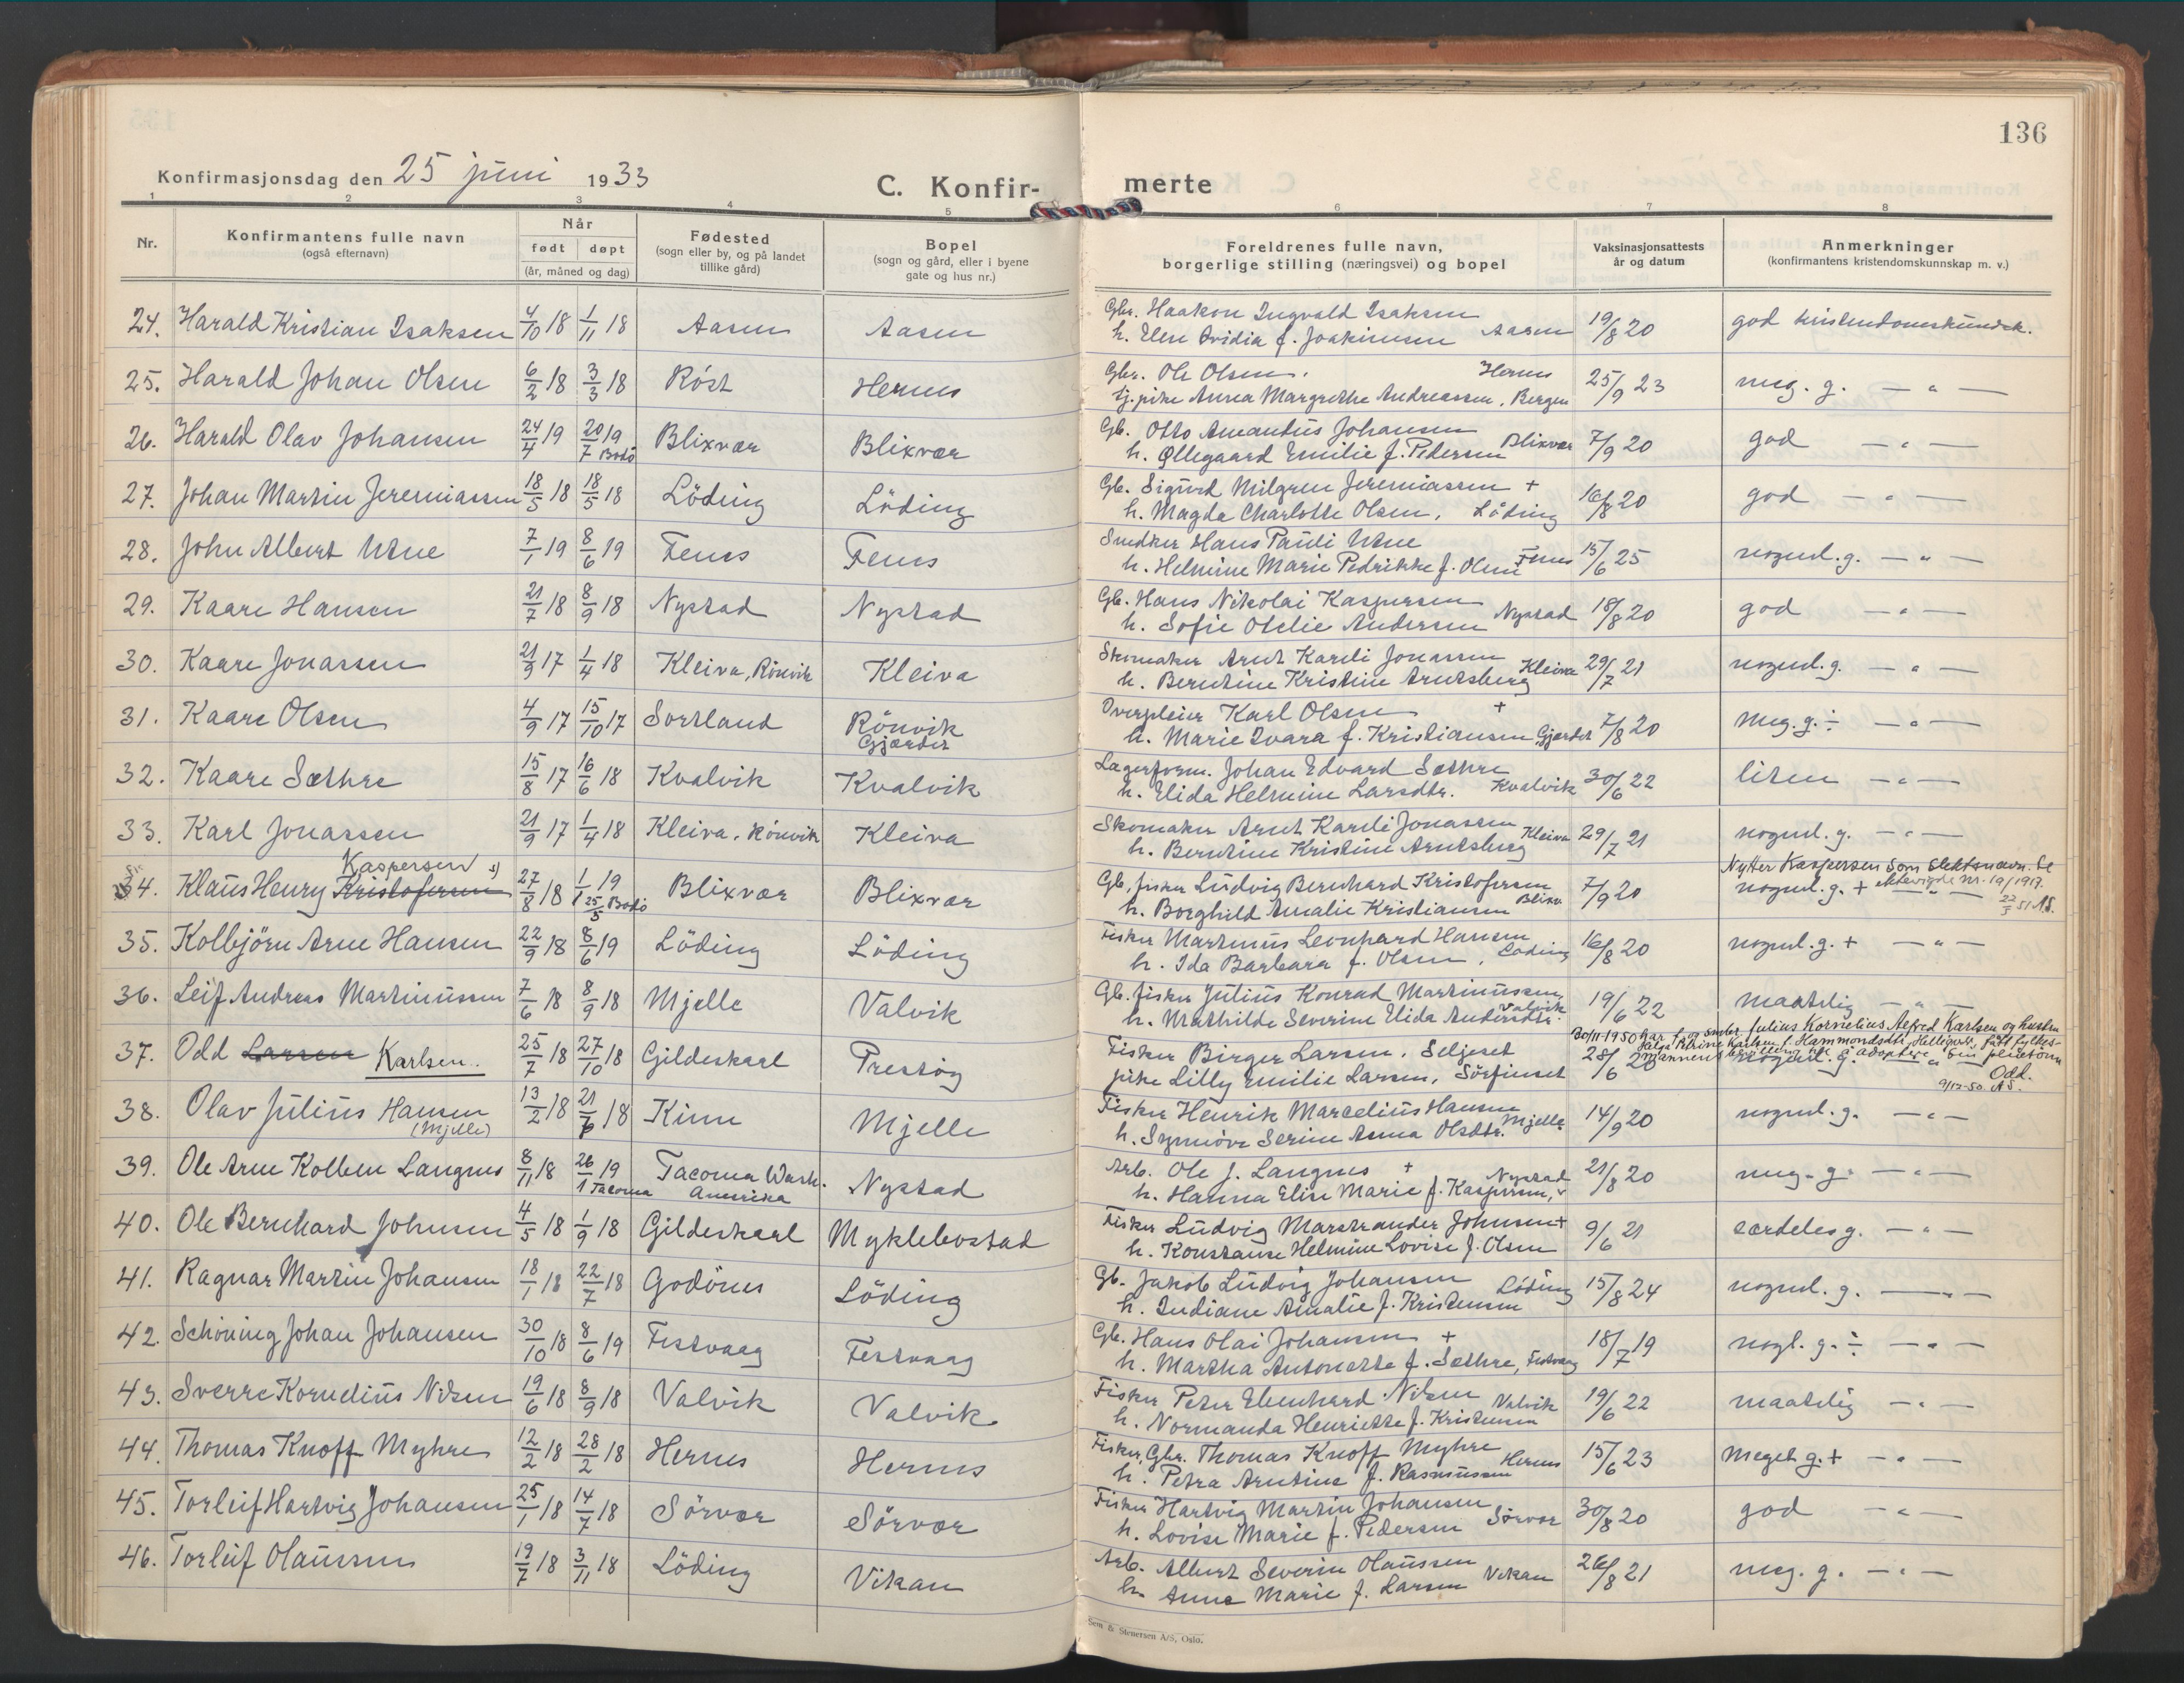 136
Konfirmasjonsdag den 25 juni 1933
C. Konfirmerte
1 2 3 4 5 6 7 8
Nr.
Konfirmantens fulle navn
(også efternavn)
Når
født døpt
(år, måned og dag)
Fødested
(sogn eller by, og på landet
tillike gård)
Bopel
(sogn og gård, eller i byene
gate og hus nr.)
Foreldrenes fulle navn,
borgerlige stilling (næringsvei) og bopel
Vaksinasjonsattests
år og datum
Anmerkninger
(konfirmantens kristendomskunnskap m. v.)
24. Harald Kristian Isaksen 4/10 18 1/11 18 Aasen Aasen
Gbr. Haakon Ingvald Isaksen
h. Elen Ovidia f. Joakimsen Aasen 19/8 20 god kristendomskundsk.
25. Harald Johan Olsen 6/2 18 3/3 18 Röst Hernes
Gbr. Ole Olsen, Hernes
tj.pike Anna Margrethe Andreassen, Bergen 25/9 23 meg. g. — " —
26. Harald Olav Johansen 24/4 19 20/7 19 Bodö Blixvær Blixvær
Gb. Otto Amandus Johansen
h. Øllegaard Emilie f. Pedersen Blixvær 7/9 20 god — " —
27. Johan Martin Jeremiassen 18/5 18 18/5 18 Löding Löding
Gb. Sigurd Milgren Jeremiassen +
h. Magda Charlotte Olsen, Löding 16/8 20 god — " —
28. John Albert Utne 7/1 19 8/6 19 Fenes Fenes
Snedker Hans Pauli Utne
h. Helmine Marie Pedrikke f. Olsen Fenes 15/6 25 nogenl. g. — " —
29. Kaare Hansen 21/7 18 8/9 18 Nystad Nystad
Gb. Hans Nikolai Kaspersen
h. Sofie Otelie Andersen Nystad 18/8 20 god — " —
30. Kaare Jonassen 21/9 17 1/4 18 Kleiva, Rönvik Kleiva
Skomaker Arnt Kareli Jonassen
h. Berntine Kristine Arntsberg Kleiva 29/7 21 nogenl. g. — " —
31. Kaare Olsen 4/9 17 15/10 17 Sortland Rönvik
Gjærder
Overpleier Karl Olsen +
h. Marie Ivara f. Kristiansen, Gjærder 7/8 20 Meg. g. ÷ — " —
32. Kaare Sæthre 15/8 17 16/6 18 Kvalvik Kvalvik
Lagerform. Johan Edvard Sæthre
h. Elida Helmine Larsdtr. Kvalvik 30/6 22 liten — " —
33. Karl Jonassen 21/9 17 1/4 18 Kleiva, Rönvik Kleiva
Skomaker Arnt Kareli Jonassen
h. Berntine Kristine Arntsberg Kleiva 29/7 21 nogenl. g. — " —
Kaspersen 1)
34. Klaus Henry Kristofersen 27/8 18 1/1 19 25/5 Bodö Blixvær Blixvær
Gb, fisker Ludvig Bernhard Kristofersen
h. Borghild Amalie Kristiansen Blixv. 7/9 20
Nytter Kaspersen som slektsnavn. Se
nogenl. g. + ektevigde nr. 19/1917.
22/3 51 AS.
35. Kolbjörn Arne Hansen 22/9 18 8/6 19 Löding Löding
Fisker Martinus Leonhard Hansen
h. Ida Barbara f. Olsen, Löding 16/8 20 nogenl. g. + — " —
36. Leif Andreas Martinussen 7/6 18 8/9 18 Mjelle Valvik
Gb. fisker Julius Konrad Martinussen
h. Mathilde Severine Elida Andersdtr. Valvik 19/6 22 maatelig — " —
37. Odd Larsen Karlsen. 25/7 18 27/10 18 Gildeskaal Prestöy
Fisker Birger Larsen, Seljeset
pike Lilly Emilie Larsen, Sörfinset 28/6 20 nogenl. g. — " —
30/11-1950 har f. og smbr. Julius Kornelius Alfred Karlsen og hustru
Jalga Petrine Karlsen f. Hammondsdtr., Helligvær, fått fylkes-
mannens bevilling til å adoptere sin pleiesönn
Odd.
9/12-50. AS.
38. Olav Julius Hansen 13/2 18 21/7 18 Kinn Mjelle
(Mjelle)
Fisker Henrik Marcelius Hansen
h. Synnöve Serine Anna Olsdtr. Mjelle 14/9 20 nogenl. g. — " —
39. Ole Arne Kolben Langnes 8/11 18 26/1 19 Tacoma Tacoma Wash. Nystad
Amerika
Arb. Ole J. Langnes + Nystad
h. Hanna Elise Marie f. Kaspersen, 21/8 20 meg. g. — " —
40. Ole Bernhard Johnsen 4/5 18 1/9 18 Gildeskaal Myklebostad
Fisker Ludvig Marstrander Johnsen +
h. Konstanse Helmine Lovise f. Olsen 9/6 21 særdeles g. — " —
41. Ragnar Martin Johansen 18/1 18 22/7 18 Godönes Löding
Gb. Jakob Ludvig Johansen Löding
h. Indiane Amalie f. Kristensen 15/8 24 nogenl. g. — " —
42. Schöning Johan Johansen 30/10 18 8/6 19 Festvaag Festvaag
Gb. Hans Olai Johansen +
h. Martha Antonette f. Sæthre, Festvaag 18/7 19 nogl. g. ÷ — " —
43. Sverre Kornelius Nilsen 19/6 18 8/9 18 Valvik Valvik
Fisker Peter Ebenhard Nilsen Valvik
h. Normanda Henriette f. Kristensen 19/6 22 maatelig — " —
44. Thomas Knoff Myhre 12/2 18 28/2 18 Hernes Hernes
Fisker, Gbr. Thomas Knoff Myhre
h. Petra Arntine f. Rasmussen Hernes 15/6 23 Meget g. + — " —
45. Torleif Hartvig Johansen 25/1 18 14/7 18 Sörvær Sörvær
Fisker Hartvig Martin Johansen
h. Lovise Marie f. Pedersen Sörvær 30/8 20 god — " —
46. Torleif Olaussen 19/7 18 3/11 18 Löding Vikan
Arb. Albert Severin Olaussen
h. Anna Marie f. Larsen Vikan 26/8 21 meg. g. — " —
Sem & Stenersen A/S, Oslo.